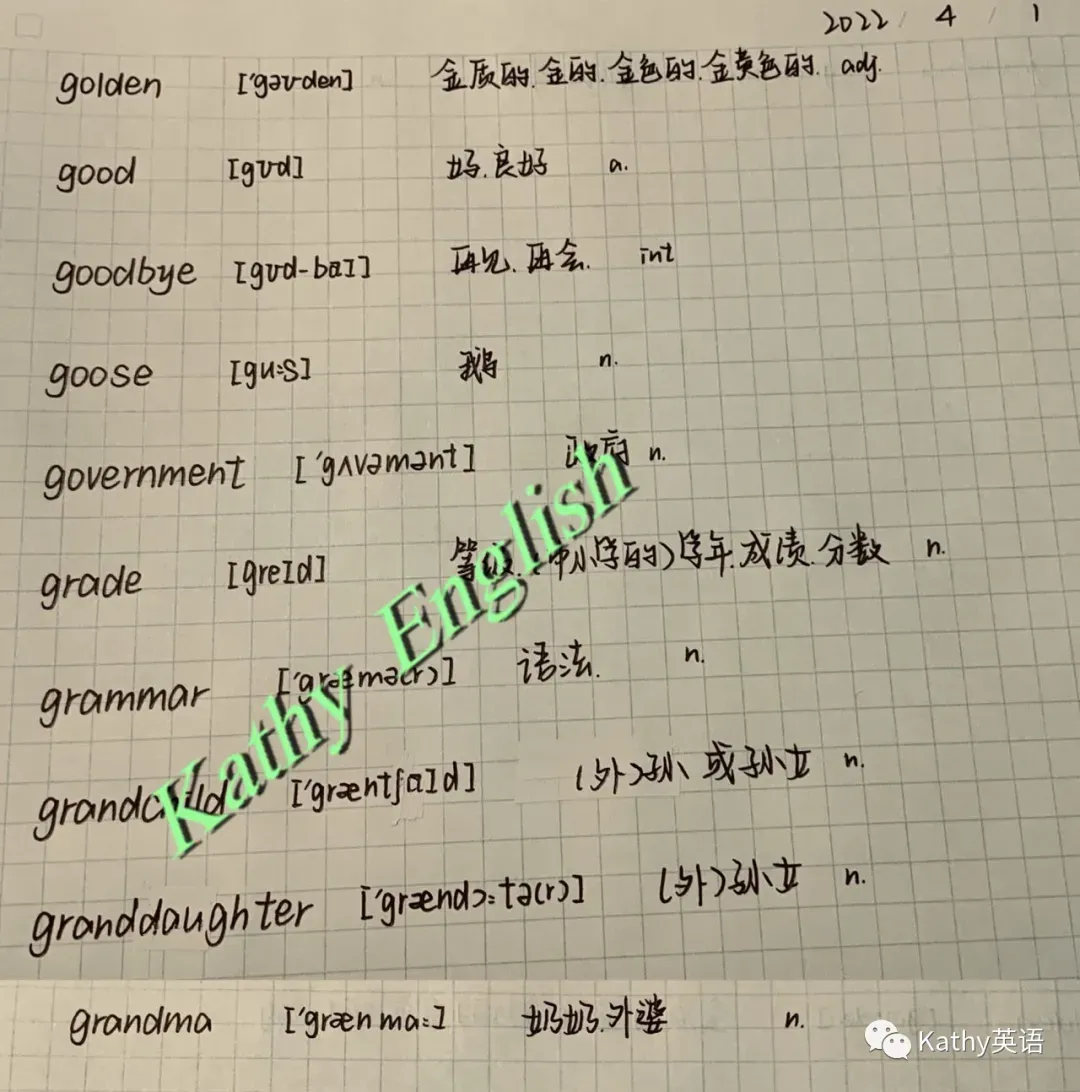 2022 / 4 / 1
golden ['gəʊden] 金质的.金的.金色的.金黄色的. adj.
good [gʊd] 好.良好 a.
goodbye [gʊd-baɪ] 再见.再会. int
goose [gu:s] 鹅 n.
government ['gʌvəmənt] 政府 n.
grade [greɪd] 等级.(中小学的)学年.成绩.分数 n.
grammar ['græmə(r)] 语法. n.
grandchild ['græntʃaɪd] (外)孙或孙女 n.
granddaughter ['grændɔ:tə(r)] (外)孙女 n.
grandma ['grænma:] 奶奶.外婆 n.
Kathy English
Kathy英语